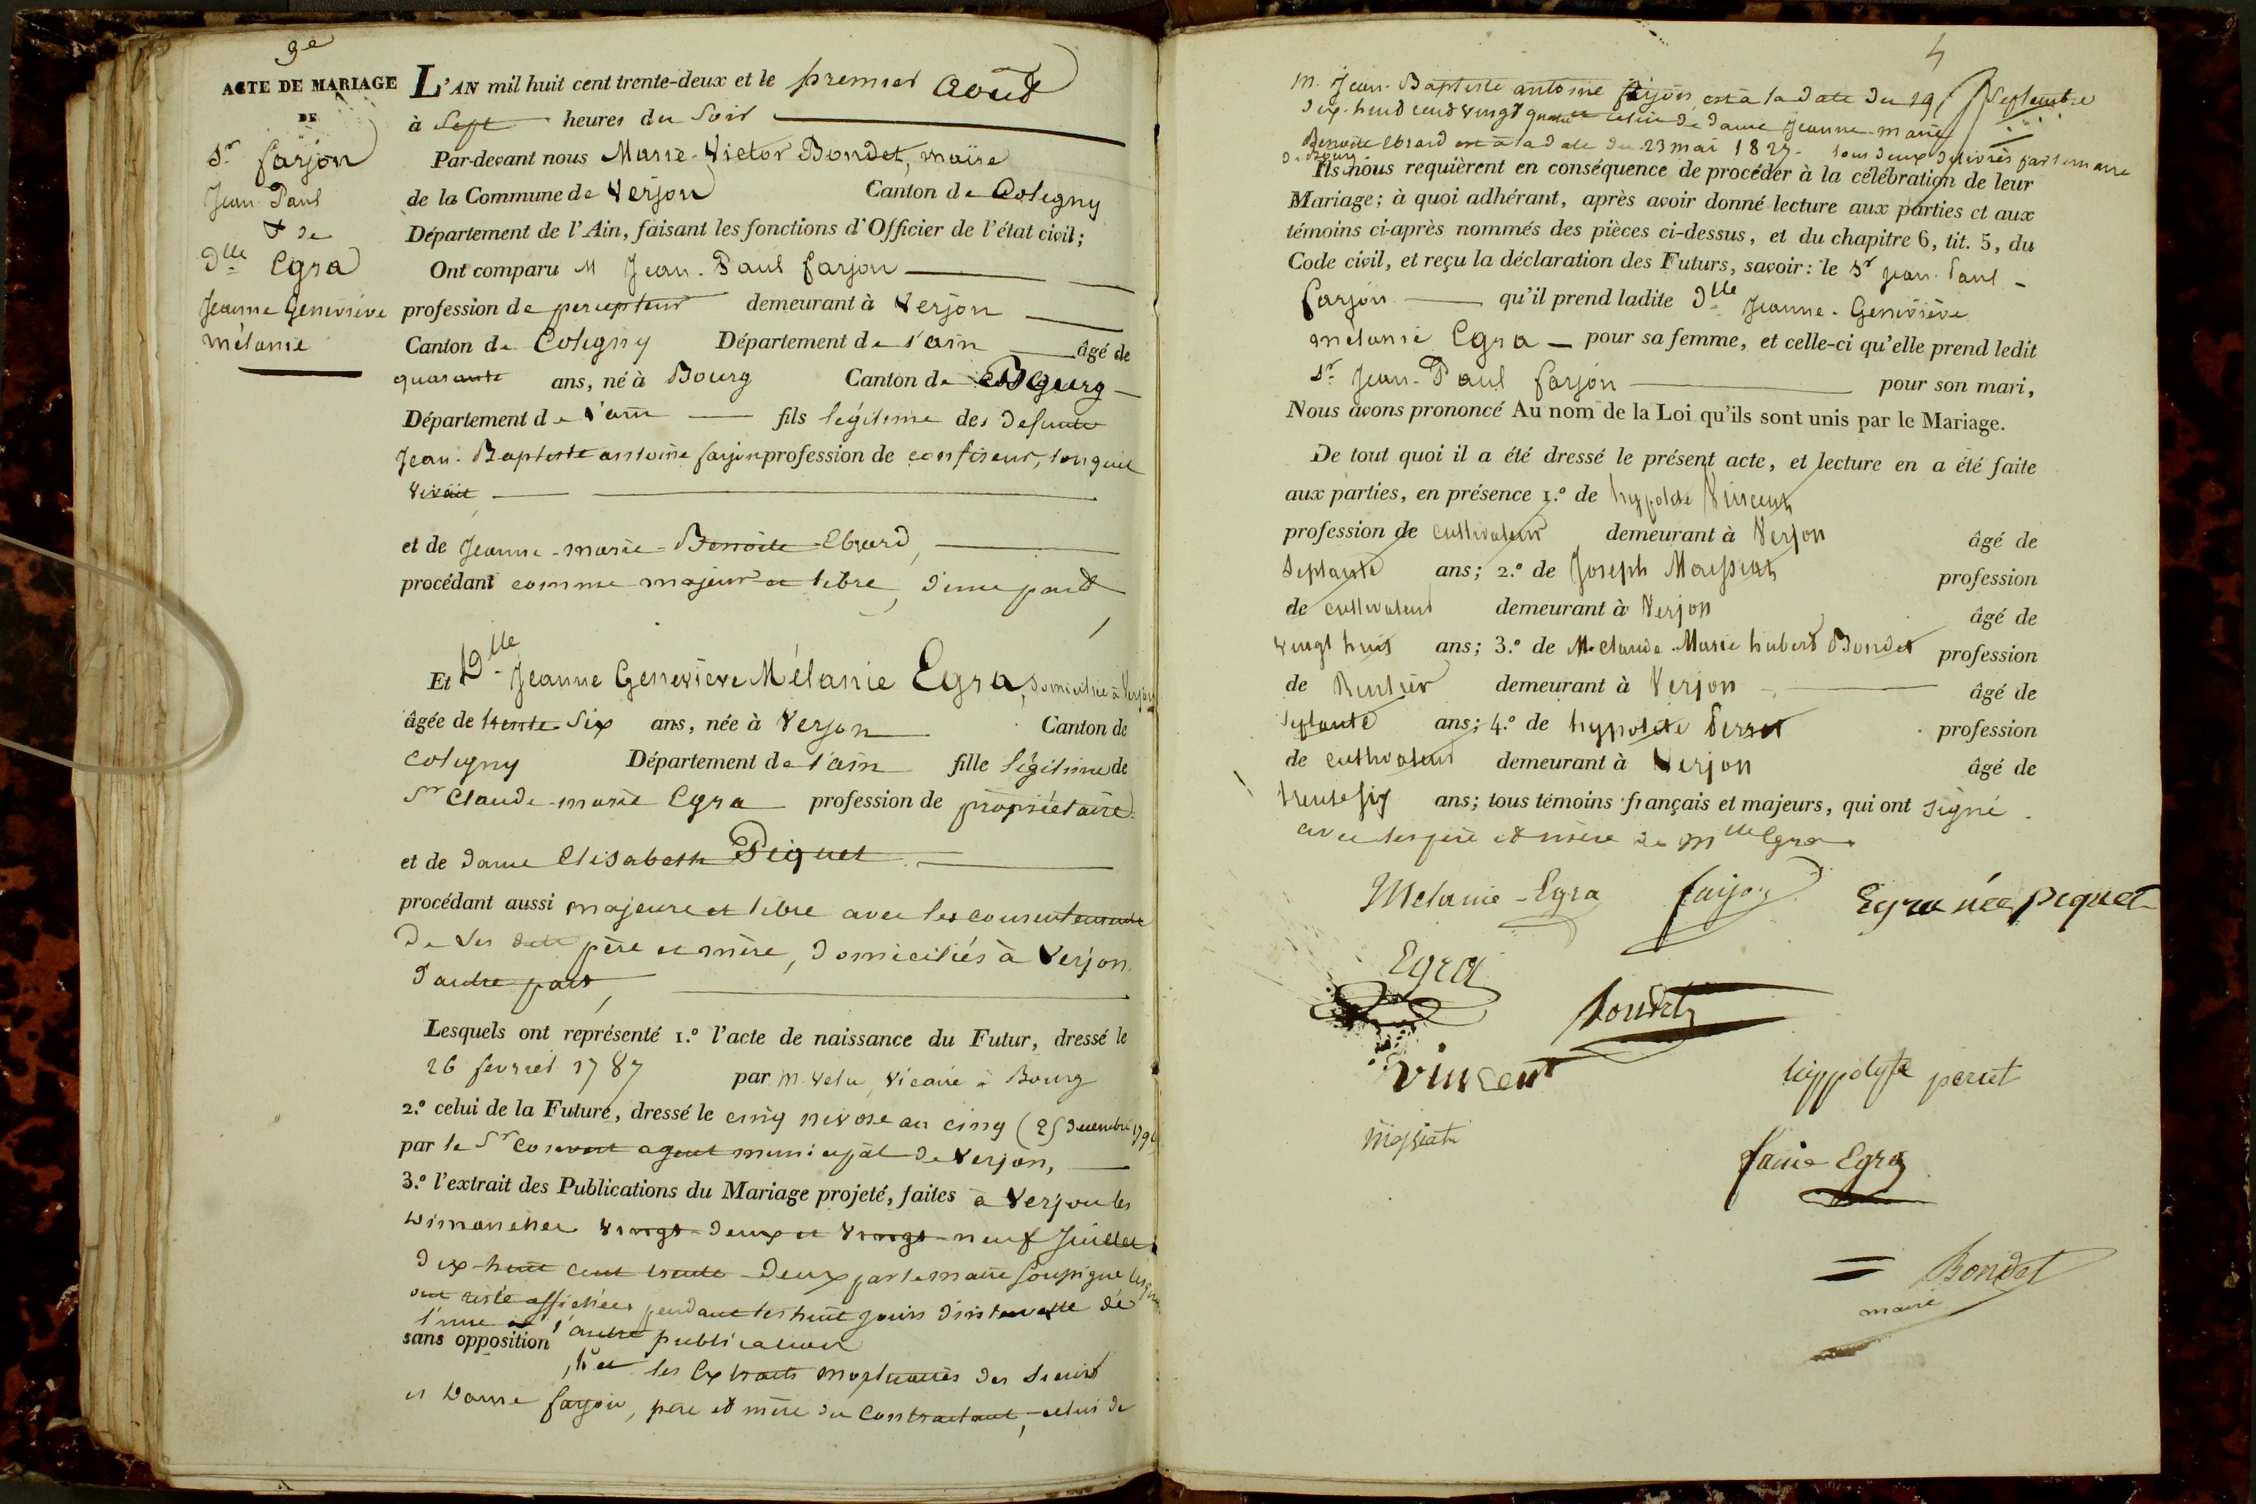 3e
ACTE DE MARIAGE
DE
Sr farjon
Jean Paul
& de
Dlle Egra
Jeanne Geneviève
mélanie
L'AN mil huit cent trente-deux et le premier août
à Sept heures du Soir
Par-devant nous Marie-Victor Bondet, maire
de la Commune de Verjon Canton de Coligny
Département de l'Ain, faisant les fonctions d'Officier de l'état civil;
Ont comparu M Jean-Paul farjon
profession de percepteur demeurant à Verjon
Canton de Coligny Département de l'ain âgé de
quarante ans, né à Bourg Canton de Bourg
Département de l'ain fils légitime des défunts
Jean-Baptiste antoine farjon profession de confiseur, lorsquil
vivait,
et de Jeanne-marie-Benoite Ebrard,
procédant comme majeur et libre, d'une part
Et Dlle Jeanne Geneviève Mélanie Egra, domiciliée à Verjon
âgée de trente-Six ans, née à Verjon Canton de
Coligny Département de l'ain fille légitime de
Sr Claude-marie Egra profession de propriétaire
et de dame Elisabeth Piquet
procédant aussi majeure et libre avec les consentements
De Ses dits père et mère, domiciliés à Verjon
d'autre part,
Lesquels ont représenté 1.º l'acte de naissance du Futur, dressé le
26 fevrier 1787 par m. Velu, Vicaire à Bourg
2.º celui de la Future, dressé le cinq nivose an cinq (25 Decembre 1796
par le Sr agent municipal de Verjon,
3.º l'extrait des Publications du Mariage projeté, faites à Verjon les
Dimanches vingt-deux et vingt-neuf Juillet
dix-huit cent trente-deux par le maire soussigné
ont resté affichées pendant les huit jours d'intervalle de
l'une à l'autre publication
sans opposition
, 4º et les Extraits mortuaires des Sieur
et Dame farjon, père et mère du Contractant, celui de
4
m. Jean-Baptiste antoine farjon est à la date du 19 Septembre
dix-huit cent vingt quatre celui de dame Jeanne-marie
Benoite Ebrard est à la date du 23 mai 1827. tous deux délivrés par le maire
de Bourg
Ils nous requièrent en conséquence de procéder à la célébration de leur
Mariage; à quoi adhérant, après avoir donné lecture aux parties et aux
témoins ci-après nommés des pièces ci-dessus, et du chapitre 6, tit. 5, du
Code civil, et reçu la déclaration des Futurs, savoir: le Sr Jean-Paul
farjon qu'il prend ladite Dlle Jeanne-Geneviève
mélanie Egra pour sa femme, et celle-ci qu'elle prend ledit
Sr Jean-Paul farjon pour son mari,
Nous avons prononcé Au nom de la Loi qu'ils sont unis par le Mariage.
De tout quoi il a été dressé le présent acte, et lecture en a été faite
aux parties, en présence 1.º de hypolite Vincent
profession de cultivateur demeurant à Verjon âgé de
septante ans; 2.º de Joseph Massiat profession
de cultivateur demeurant à Verjon âgé de
vingt huit ans; 3.º de M. Claude-Marie hubert Bondet profession
de Rentier demeurant à Verjon âgé de
septante ans; 4.º de hypolite Perret profession
de cultivateur demeurant à Verjon âgé de
trente six ans; tous témoins français et majeurs, qui ont signé
avec les père et mère de Mlle Egra.
Melanie-Egra farjon Egra née piquet
Egra
Bondet
Vincent
hippolyte perret
Massiat
Egra
Bondet
maire